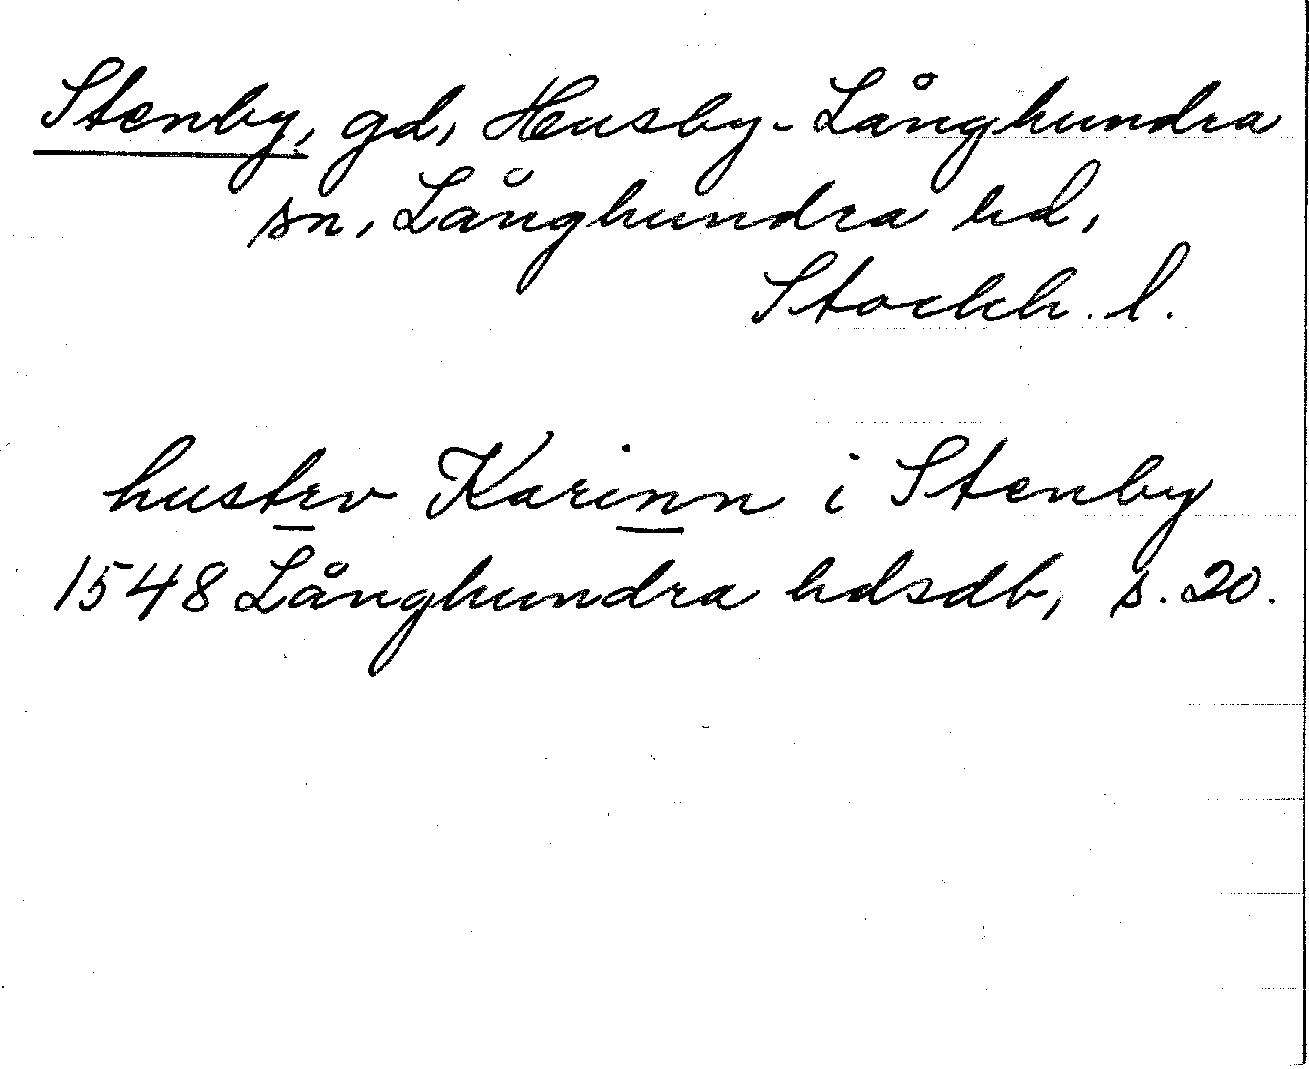 Stenby, gd, Husby-Långhundra
sn, Långhundra hd,
Stockh. l.
hustrv Karinn i Stenby
1548 Långhundra hdsdb, s. 20.